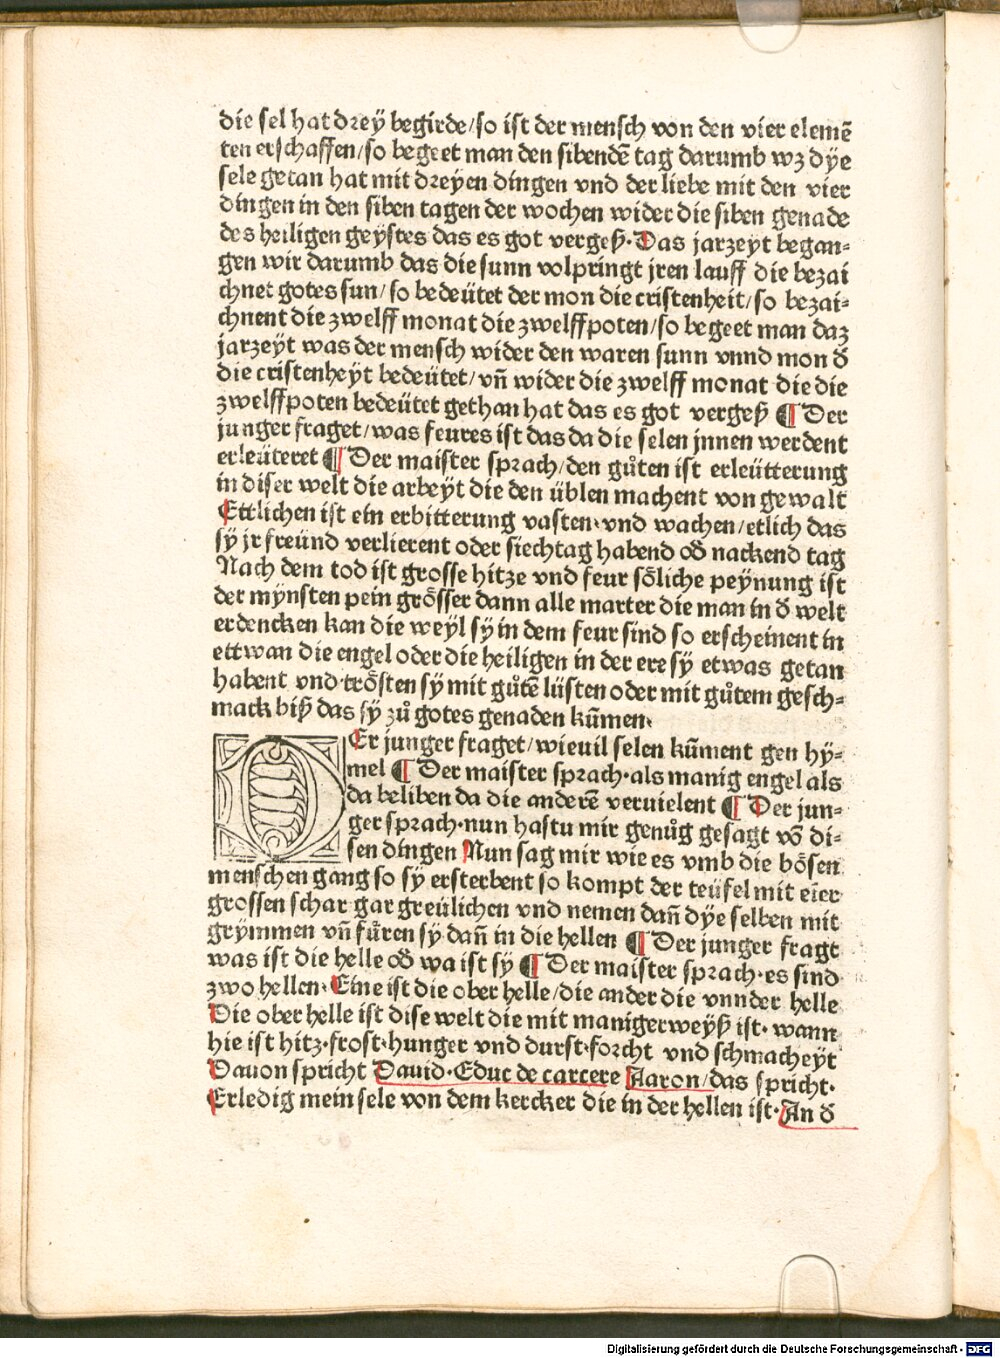 die sel hat drey begirde/so ist der mensch von den vier elemē
ten erschaffen/so begeet man den sibendē tag darumb wz dÿe
sele getan hat mit dreÿen dingen vnd der liebe mit den vier
dingen in den siben tagen der wochen wider die siben genade
des heiligen geÿstes das es got vergeß·Das jarzeÿt began⸗
gen wir darumb das die sunn volpringt jren lauff die bezai
chnet gotes sun/so bedeütet der mon die cristenheit/so bezai⸗
chnent die zwelff monat die zwelffpoten/so begeet man daz
jarzeÿt was der mensch wider den waren sunn vnnd mon đ
die cristenheÿt bedeütet/vñ wider die zwelff monat die die
zwelffpoten bedeütet gethan hat das es got vergeß ¶ Der
junger fraget/was feures ist das da die selen jnnen werdent
erleüteret ¶ Der maister sprach/den gůten ist erleütterung
in diser welt die arbeÿt die den üblen machent von gewalt
Ettlichen ist ein erbitterung vasten·vnd wachen/etlich das
sÿ jr freünd verlierent oder siechtag habend ođ nackend tag
Nach dem tod ist grosse hitze vnd feur söliche peÿnung ist
der mÿnsten pein grösser dann alle marter die man in đ welt
erdencken kan die weÿl sÿ in dem feur sind so erscheinent in
ettwan die engel oder die heiligen in der ere sÿ etwas getan
habent vnd trösten sÿ mit gůtē lüsten oder mit gůtem gesch⸗
mack biß das sÿ zů gotes genaden kūmen·
DEr junger fraget/wieuil selen kūment gen hÿ⸗
mel ¶ Der maister sprach·als manig engel als
da beliben da die anderē veruielent ¶ Der jun⸗
ger sprach·nun hastu mir genůg gesagt vō di⸗
sen dingen Nun sag mir wie es vmb die bösen
menschen gang so sÿ ersterbent so kompt der teüfel mit eīer
grossen schar gar greülichen vnd nemen dañ dÿe selben mit
grÿmmen vñ fůren sÿ dañ in die hellen ¶ Der junger fragt
was ist die helle ođ wa ist sÿ ¶ Der maister sprach·es sind
zwo hellen·Eine ist die ober helle/die ander die vnnder helle
Die ober helle ist dise welt die mit manigerweÿß ist·wann
hie ist hitz·frost·hunger vnd durst·forcht vnd schmacheÿt
Dauon spricht Dauid·Educ de carcere Aaron/das spricht·
Erledig mein sele von dem kercker die in der hellen ist·An đ
Digitalisierung gefördert durch die Deutsche Forschungsgemeinschaft - DFG